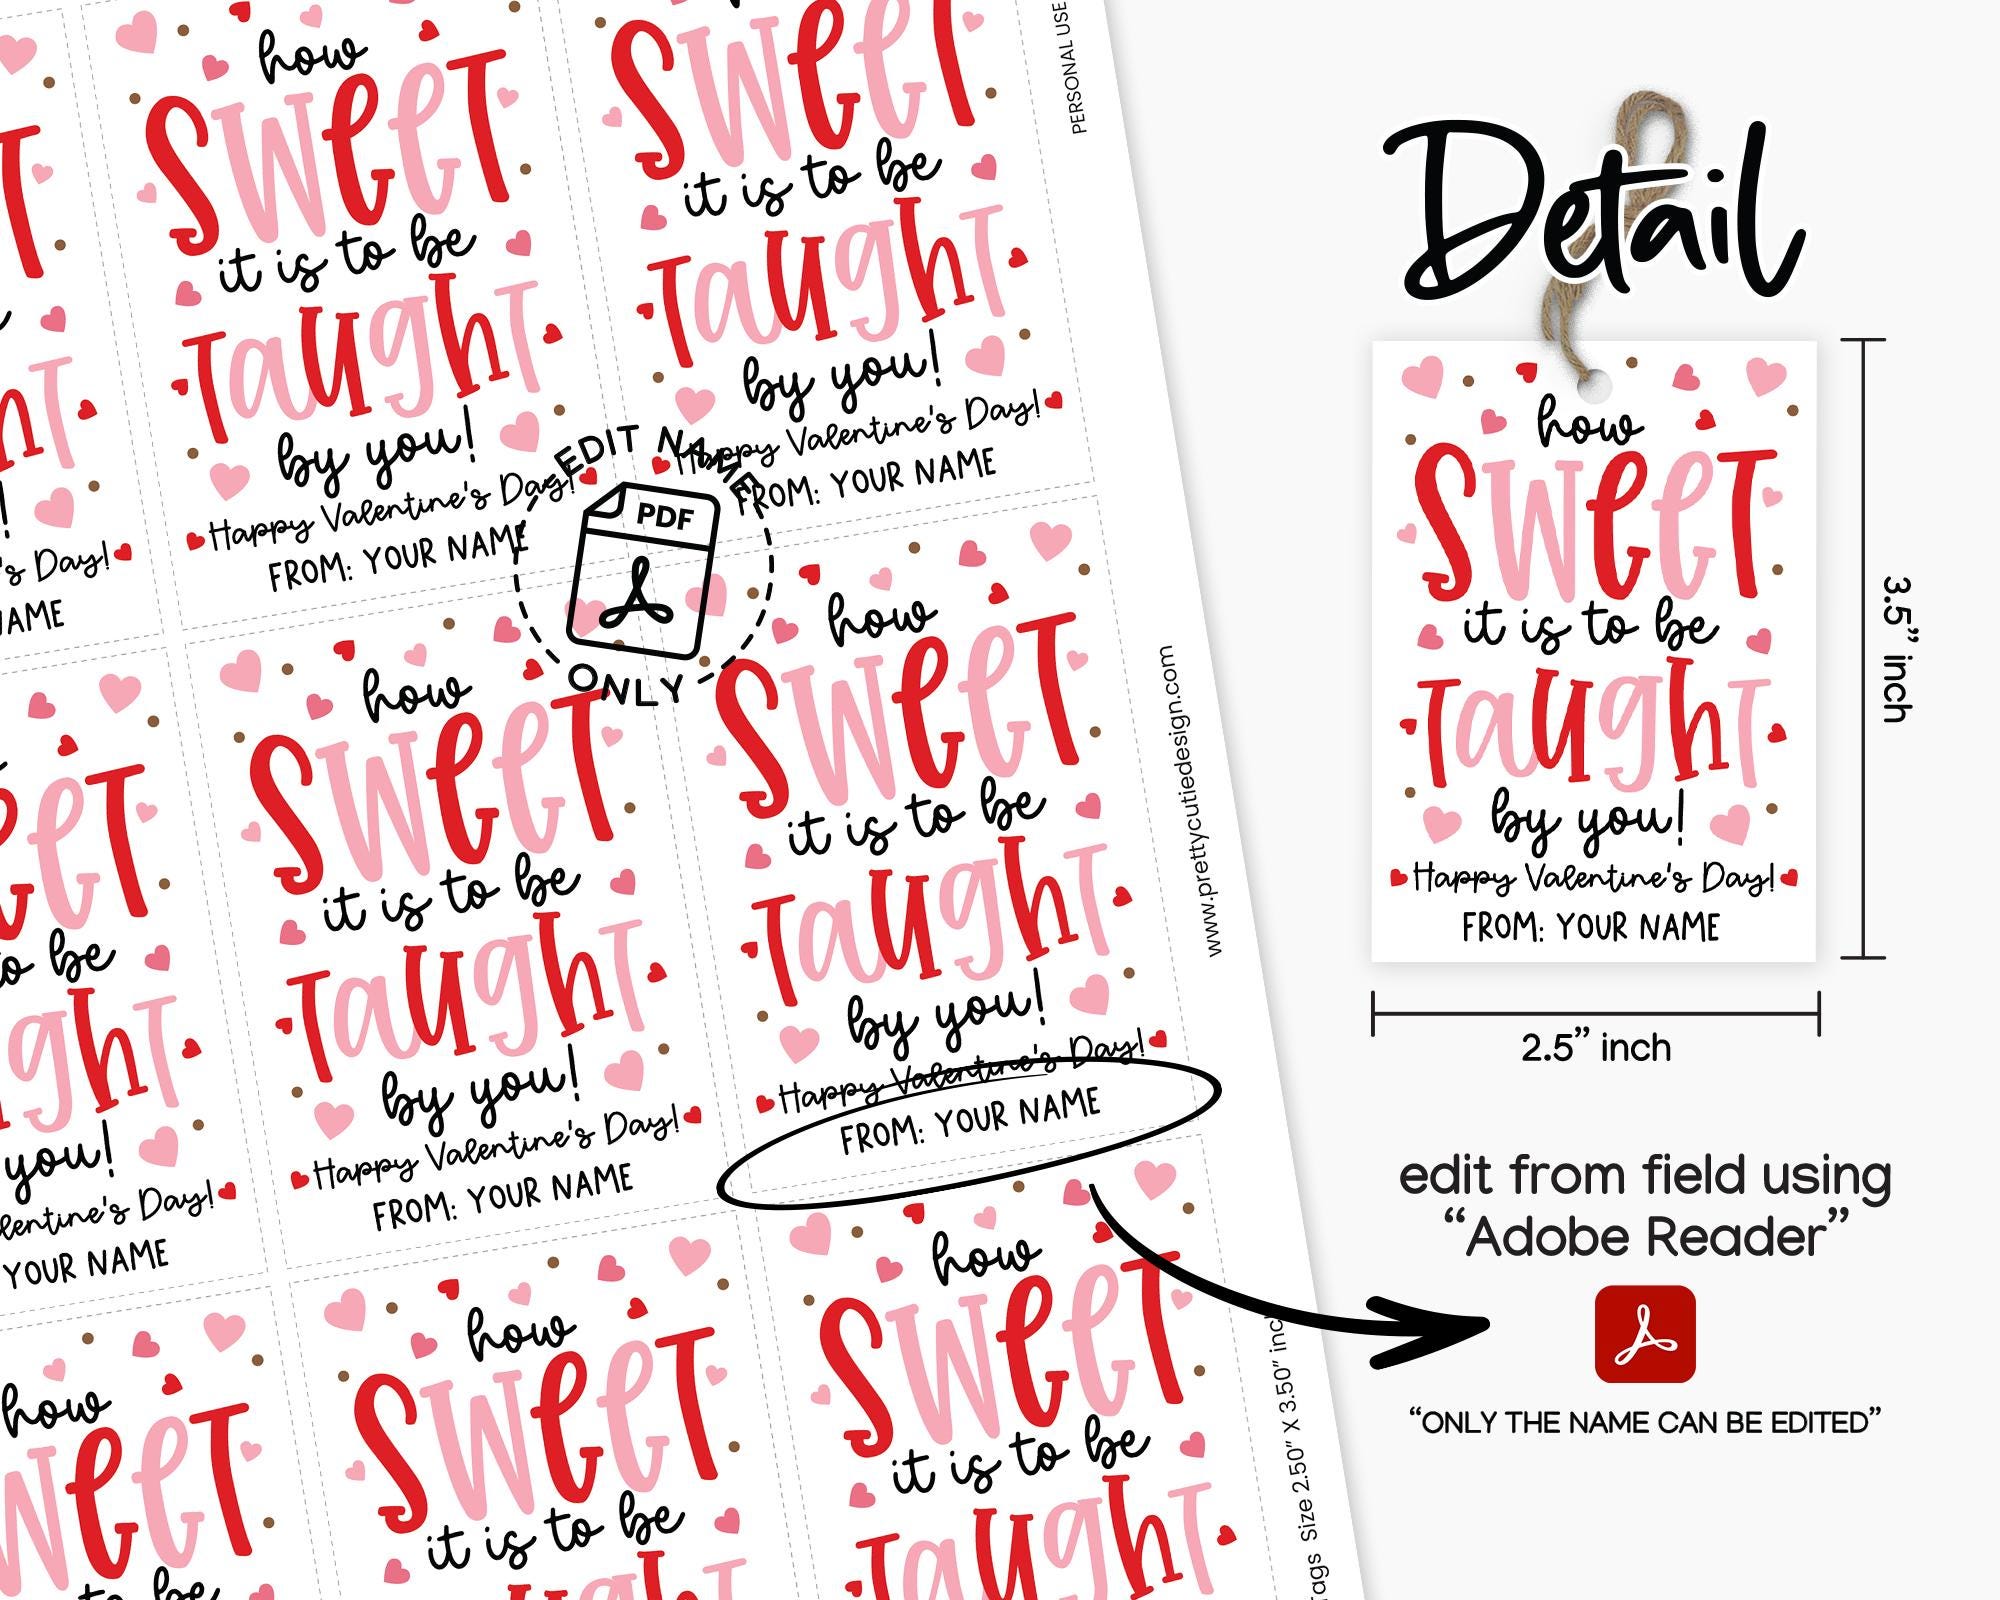 how
SWEET
it is to be
Taught
by you!
Happy Valentine's Day!
FROM: YOUR NAME
how
SWEET
it is to be
Taught
by you!
Happy Valentine's Day!
FROM: YOUR NAME
PERSONAL USE
T
T
's Day!
NAME
EDIT NAME
PDF
ONLY
how
SWEET
it is to be
Taught
by you!
Happy Valentine's Day!
FROM: YOUR NAME
how
SWEET
it is to be
Taught
by you!
Happy Valentine's Day!
FROM: YOUR NAME
www.prettycutiedesign.com
EET
to be
ght
you!
Valentine's Day!
YOUR NAME
how
WEET
to be
how
SWEET
it is to be
Taught
how
SWEET
it is to be
Taught
Tags Size 2.50” X 3.50” inch
Detail
how
SWEET
it is to be
Taught
by you!
Happy Valentine's Day!
FROM: YOUR NAME
3.5” inch
2.5” inch
edit from field using
“Adobe Reader”
“ONLY THE NAME CAN BE EDITED”